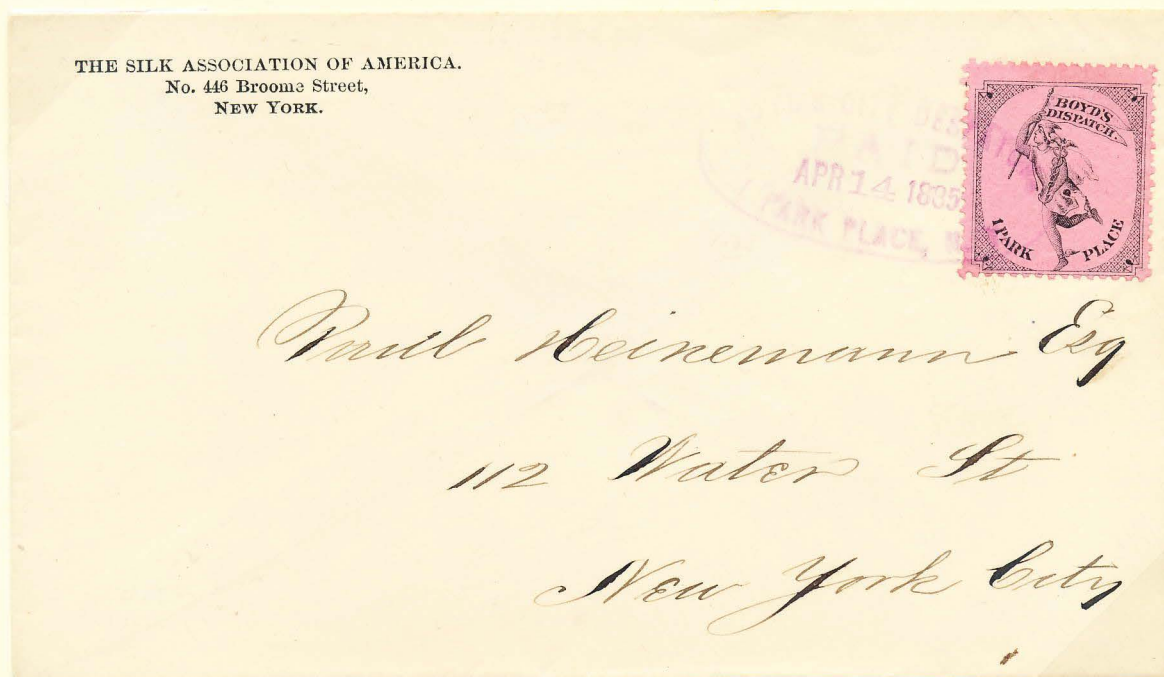 THE SILK ASSOCIATION OF AMERICA.
No. 446 Broome Street,
NEW YORK.
BOYD'S
DISPATCH.
1 PARK PLACE
PAID
APR 14 1885
PARK PLACE,
Paul Heinemann Esq
112 Water St
New York City